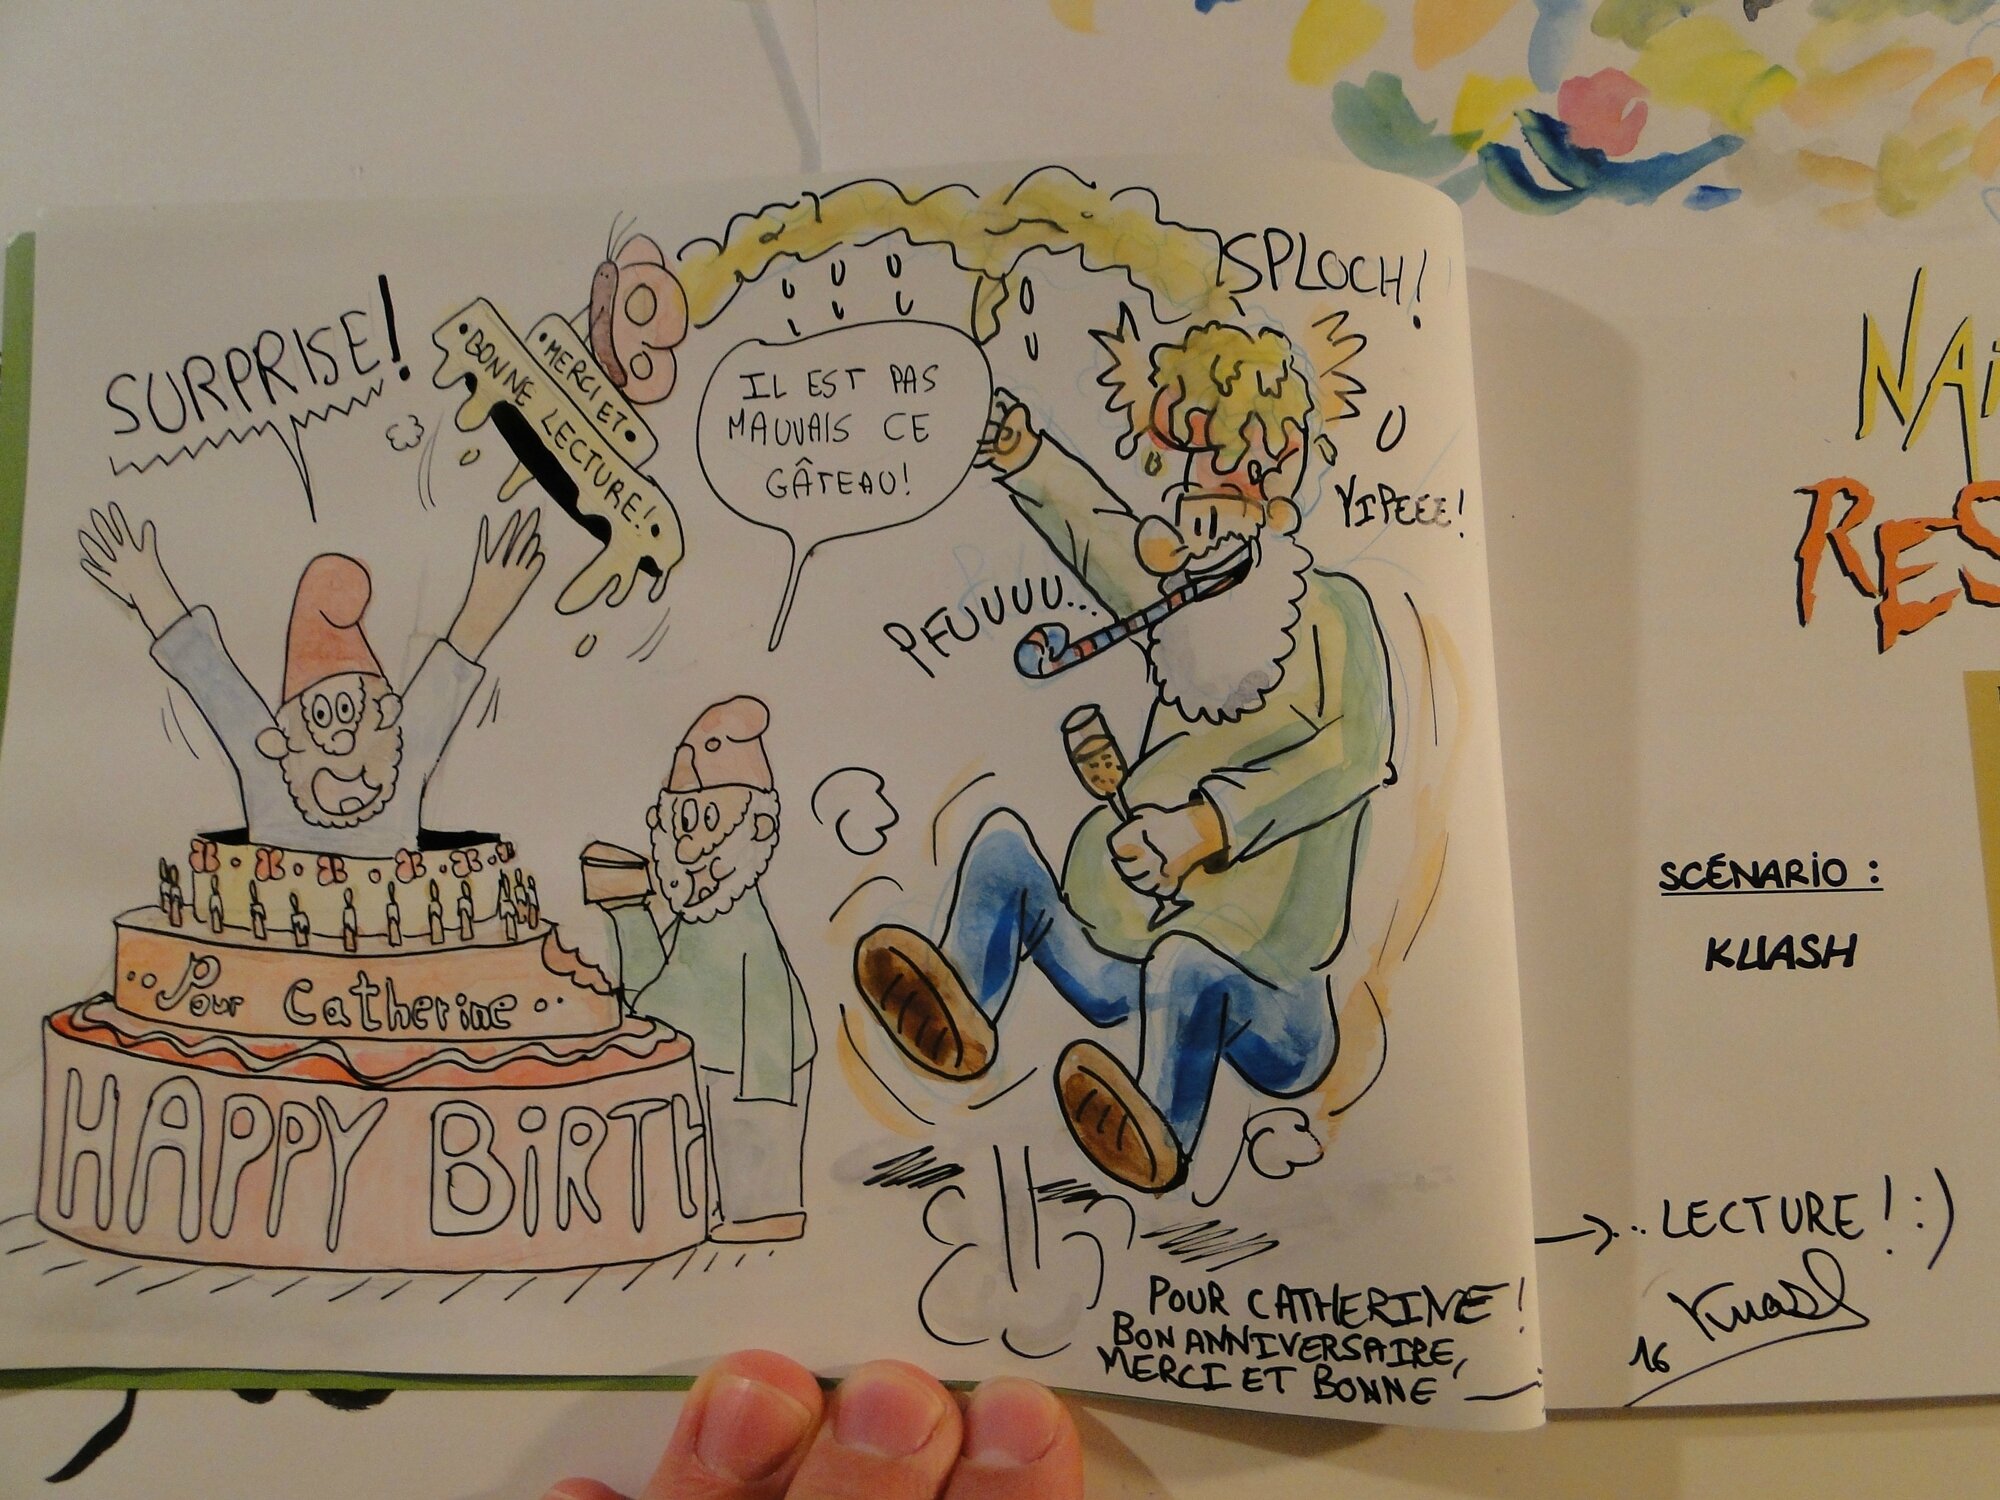 SURPRISE!
• MERCI ET •
• BONNE LECTURE! •
IL EST PAS
MAUVAIS CE
GÂTEAU!
SPLOCH!
YIPEEE!
PFUUUU...
Pour Catherine
HAPPY BIRTH
POUR CATHERINE!
BON ANNIVERSAIRE,
MERCI ET BONNE
→ .. LECTURE! :)
Kuash
16
SCÉNARIO :
KUASH